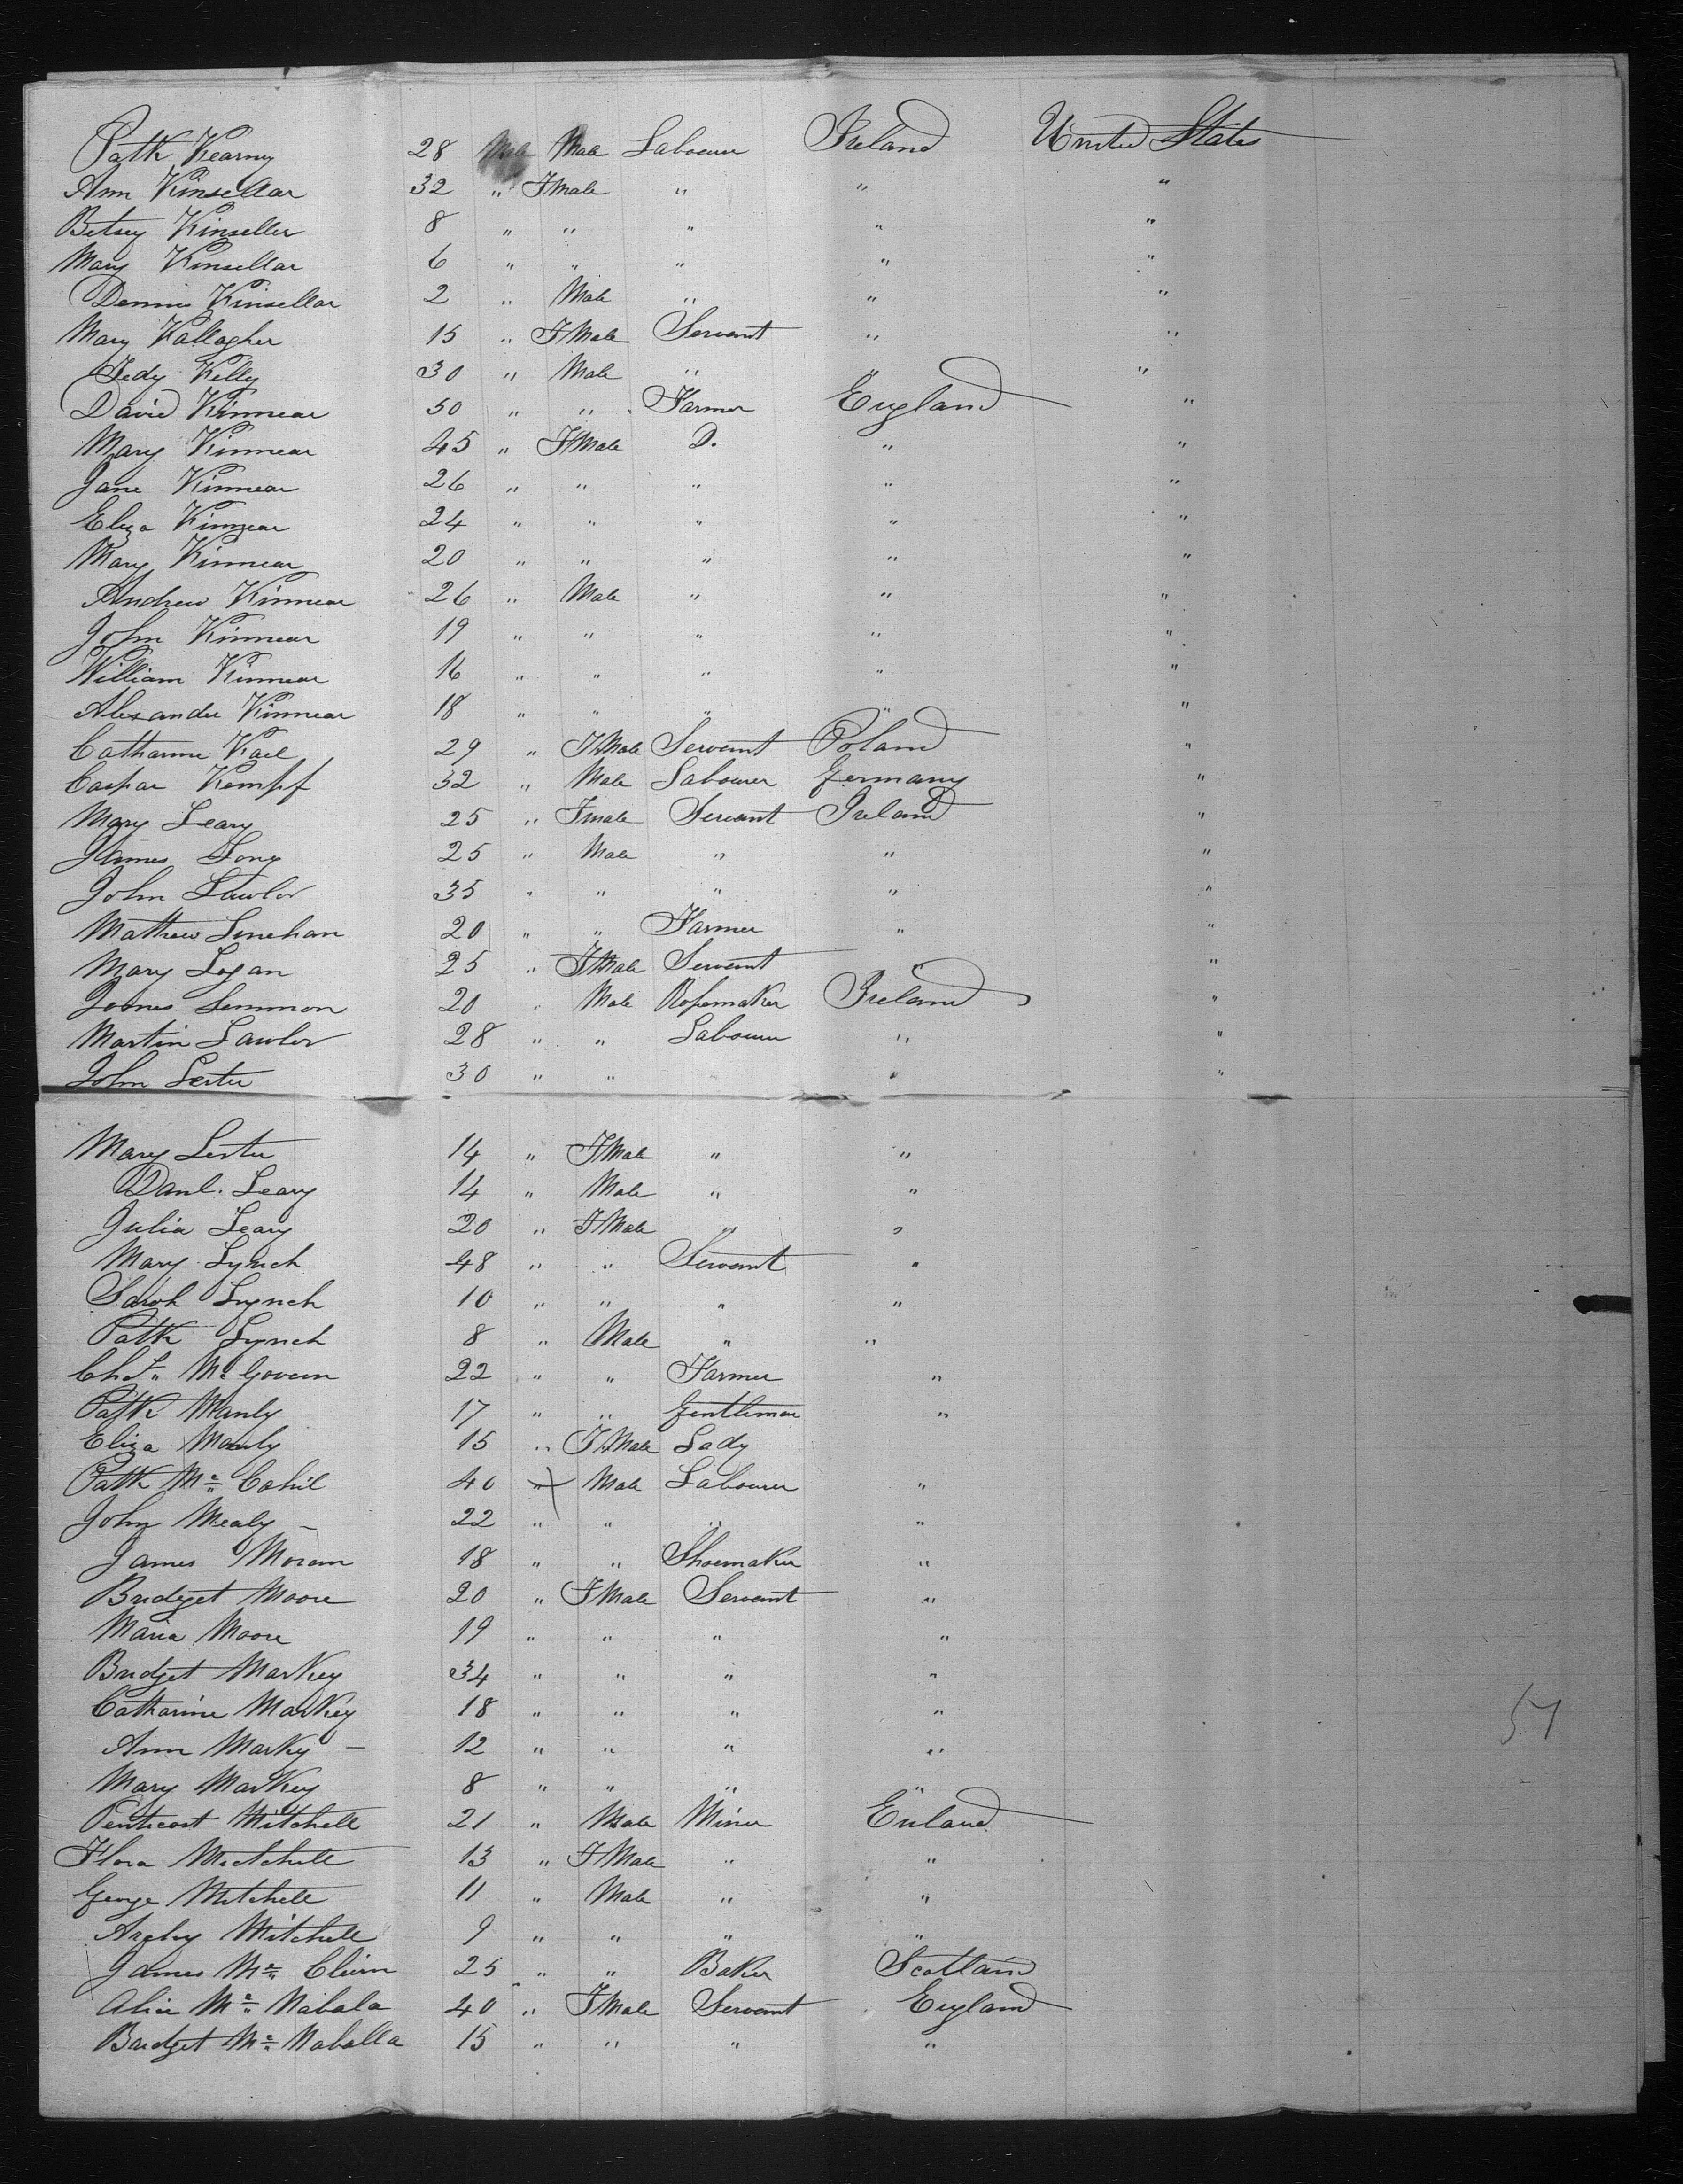 Patk Kearny 28 Male Labourer Ireland United States
Ann Kinsellar 32 " FMale " " "
Betsey Kinseller 8 " " " " "
Mary Kinsellar 6 " " " " "
Dennis Kinsellar 2 " Male " " "
Mary Kallagher 15 " FMale Servant " "
Jedy Kelly 30 " Male " " "
David Kinnear 50 " " Farmer England "
Mary Kinnear 45 " FMale D. " "
Jane Kinnear 26 " " " " "
Eliza Kinnear 24 " " " " "
Mary Kinnear 20 " " " " "
Andrew Kinnear 26 " Male " " "
John Kinnear 19 " " " " "
William Kinnear 16 " " " " "
Alexander Kinnear 18 " " " " "
Catharine Kael 29 " FMale Servant Poland "
Caspar Kempf 32 " Male Labourer Germany "
Mary Leary 25 " Fmale Servant Ireland "
James Long 25 " Male " " "
John Lawlor 35 " " " " "
Mathew Linehan 20 " " Farmer " "
Mary Logan 25 " FMale Servant " "
James Lemmon 20 " Male Ropemaker Ireland "
Martin Lawlor 28 " " Labourer " "
John Lester 30 " " " " "
Mary Lester 14 " FMale " "
Danl. Leary 14 " Male " "
Julia Leary 20 " FMale " "
Mary Lynch 48 " " Servant "
Sarah Lynch 10 " " " "
Patk Lynch 8 " Male " "
Chs. Mc Govern 22 " " Farmer "
Patk Manly 17 " " Gentleman "
Eliza Manly 15 " FMale Lady
Patk Mc Cahil 40 " Male Labourer "
John Mealy - 22 " " " "
James Moran 18 " " Shoemaker "
Bridget Moore 20 " FMale Servant "
Maria Moore 19 " " " "
Bridget Markey 34 " " " "
Catharine Markey 18 " " " "
Ann Marky - 12 " " " "
Mary Markey 8 " " " "
Penticost Mitchell 21 " Male Miner Enland
Flora Mitchell 13 " FMale " "
George Mitchell 11 " Male " "
Mitchell 9 " " " "
James Mc 25 " " Baker Scotland
Alice Mc Nabala 40 " FMale Servant England
Bridget Mc Naballa 15 " " " "